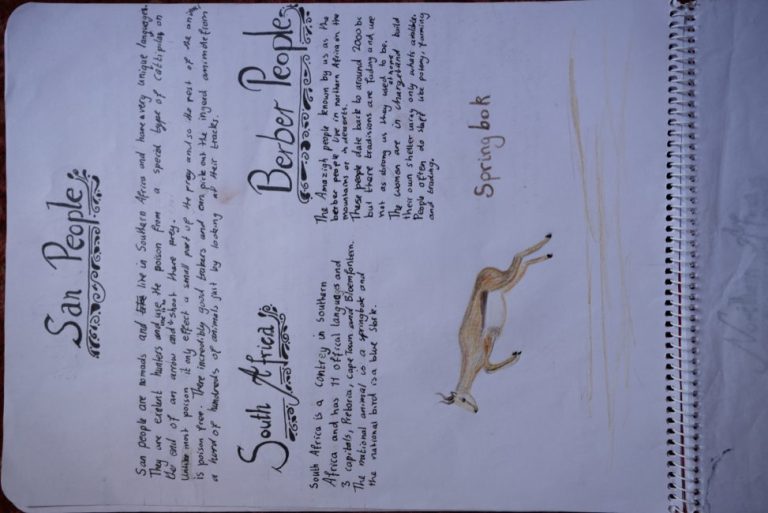 San People
San people are nomads and live in Southern Africa and have a very unique language.
They are exelent hunters and use the poison from a special type of cattipilar on
the end of an arrow and shoot there prey.
Unlike most poison it only effect a small part of the prey and so the rest of the animal
is poison free. There incredibly good trakers and can pick out the injured animale from
a hured of hundreds of animals just by looking at their tracks.
South Africa
South Africa is a contrey in southern
Africa and has 11 offical languages and
3 capitals, Pretoria, Cape Town and Bloemfontern.
The national animal is a springbok and
the national bird is a blue stork.
Berber People
The Amazigh people known by us as the
berber people live in northern Africa in the
mountains or in deserts.
These people date back to around 2000 bc
but there tradisions are fading and are
not as strong as they used to be.
The women are in charge and build
their own shelter using only whats around.
People often do stuff like potery, farming
and trading.
Springbok